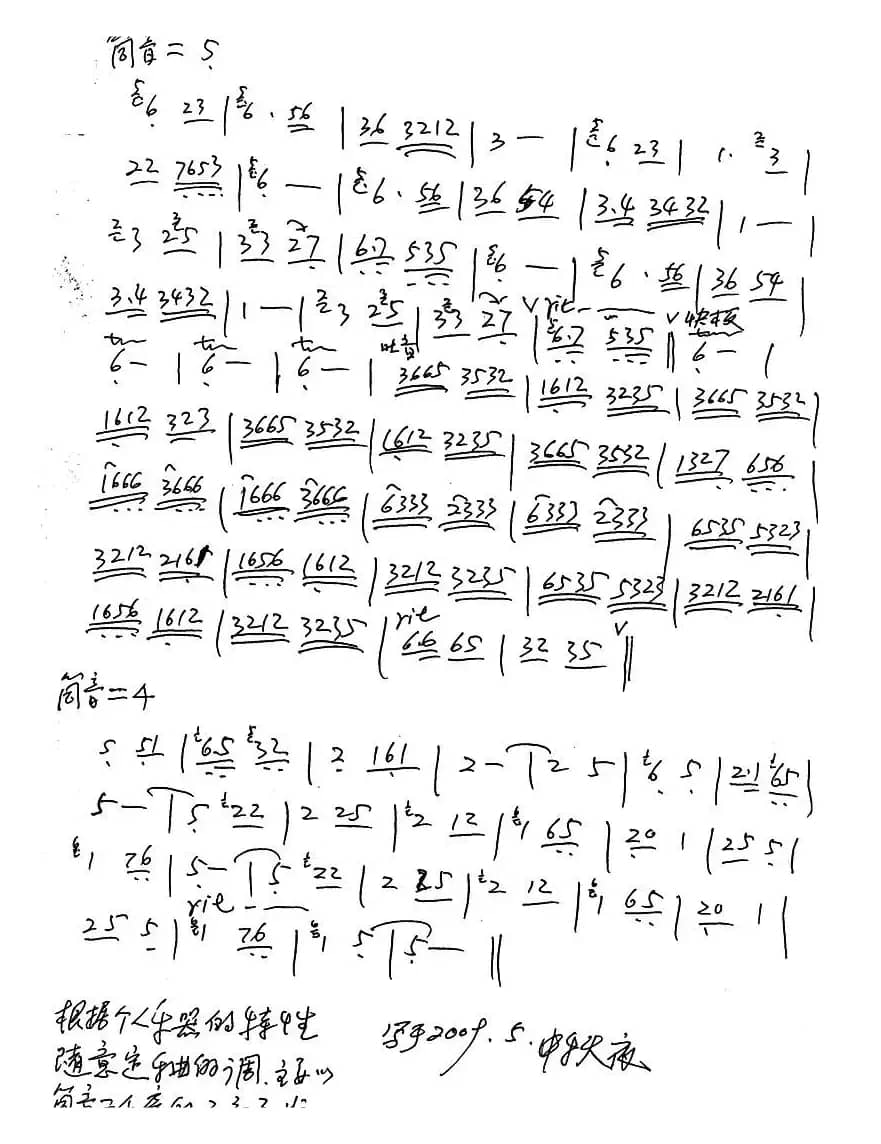 筒音=5
6 23 | 6 · 56 | 36 3212 | 3 — | 6 23 | 1 · 3 |
22 7653 | 6 — | 6 · 56 | 36 54 | 3.4 3432 | 1 — |
3 25 | 33 27 | 6.7 535 | 6 — | 6 · 56 | 36 54 |
3.4 3432 | 1 — | 3 25 | 33 27 V rit | 6.7 535 V ‖ 快板 6 — |
6 — | 6 — | 6 — | 吐音 3665 3532 | 1612 3235 | 3665 3532 |
1612 323 | 3665 3532 | 1612 3235 | 3665 3532 | 1327 656 |
1666 3666 | 1666 3666 | 6333 2333 | 6333 2333 | 6535 5323 |
3212 2161 | 1656 1612 | 3212 3235 | 6535 5323 | 3212 2161 |
1656 1612 | 3212 3235 | rit 6.6 65 | 32 35 V ‖
筒音=4
5 51 | 65 32 | 2 161 | 2 — | 2 5 | 6 5 | 2.1 65 |
5 — | 5 22 | 2 25 | 2 12 | 1 65 | 20 1 | 25 5 |
1 76 | 5 — | 5 22 | 2 25 | 2 12 | 1 65 | 20 1 |
25 5 | rit 1 76 | 1 5 | 5 — ‖
根据个人乐器的特性
随意定和曲的调.主要以
写于2009.5.中午大夜